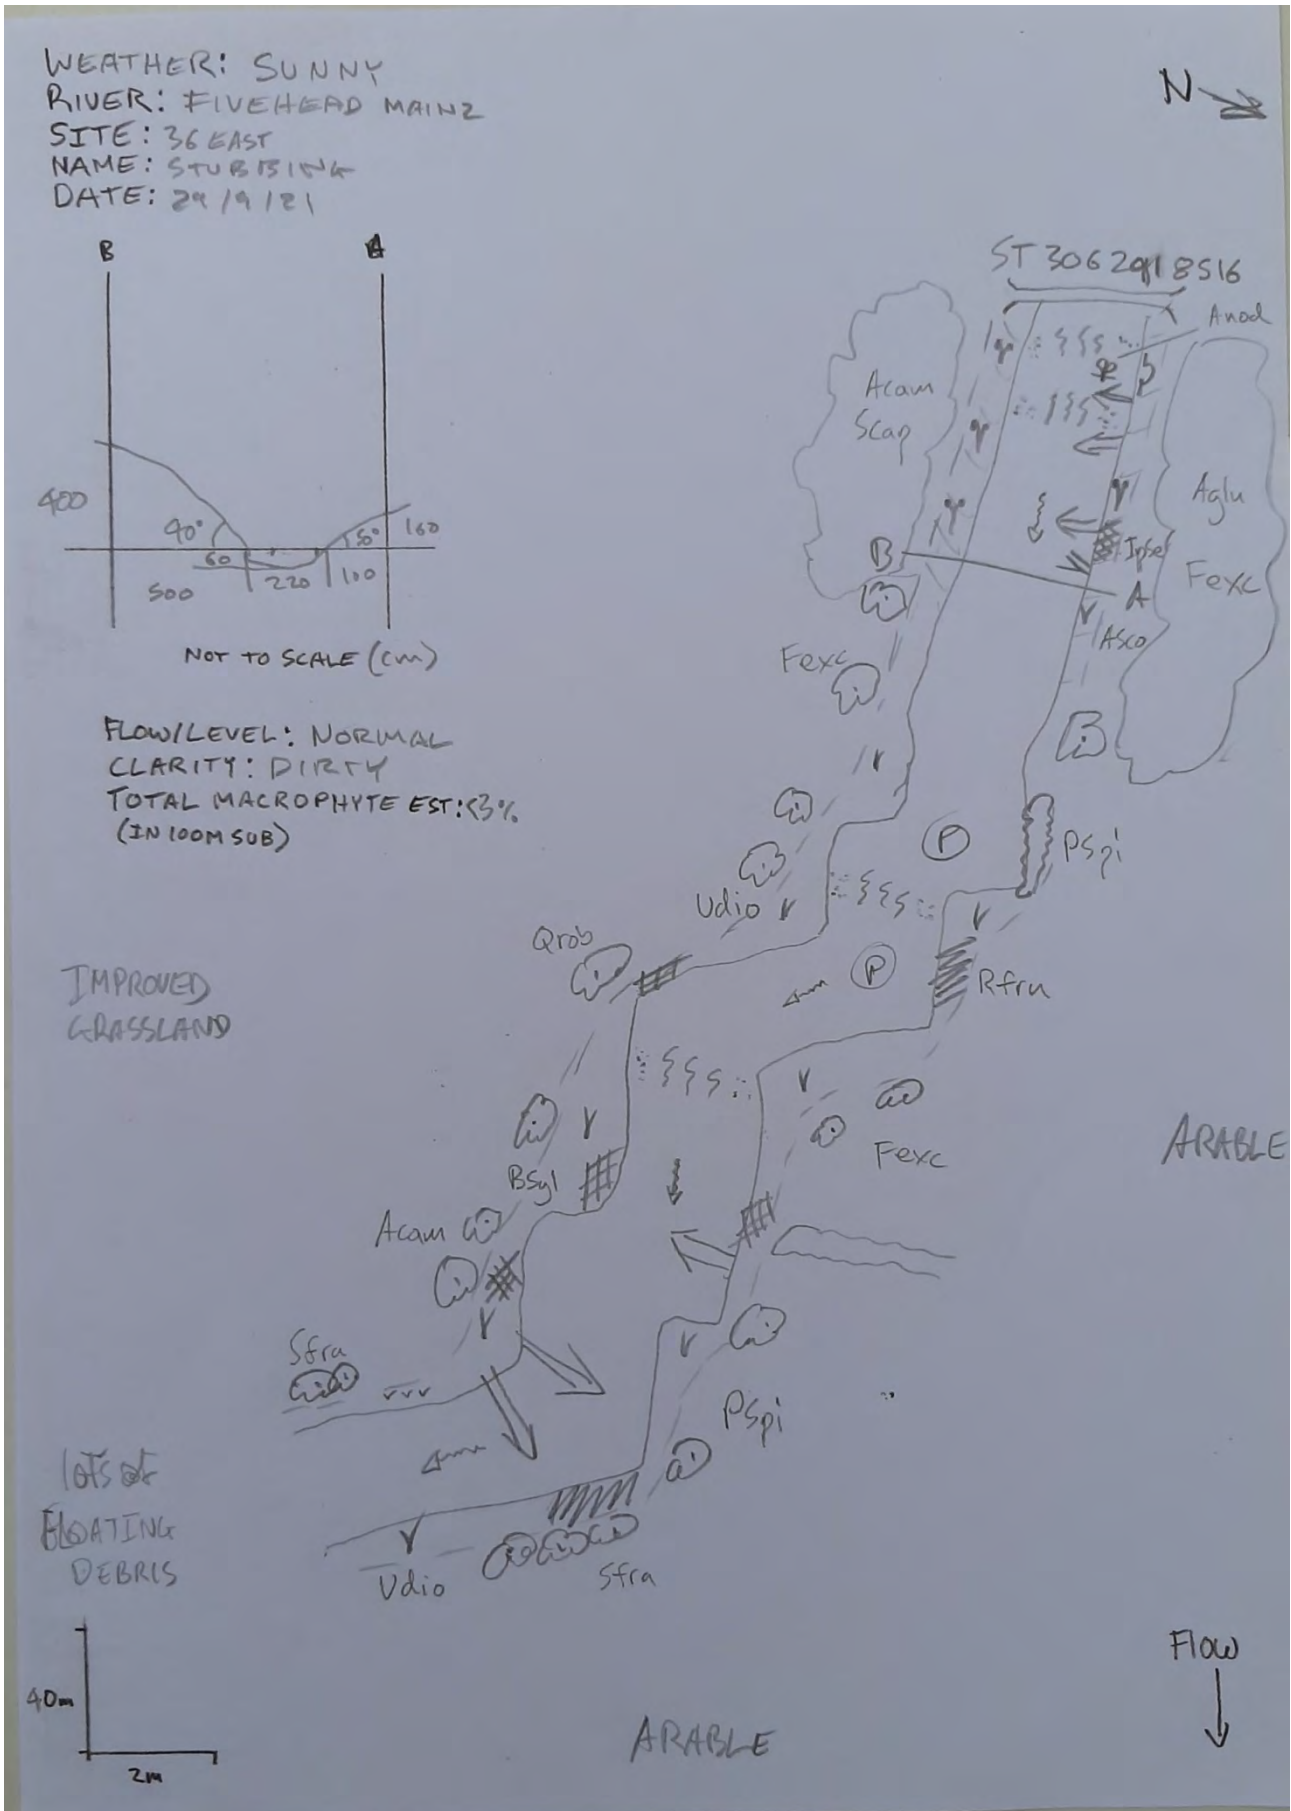 WEATHER: SUNNY
RIVER: FIVEHEAD MAIN2
SITE: 36 EAST
NAME: STUBBING
DATE: 29/9/21
N
B
A
400
40°
60
50°
160
500
220
100
NOT TO SCALE (cm)
FLOW/LEVEL: NORMAL
CLARITY: DIRTY
TOTAL MACROPHYTE EST: <3%
(IN 100M SUB)
ST 30629 18516
Anod
Acam
Scap
Aglu
Fexc
B
A
Asco
Fexc
P
PSpi
Udio
Qrob
P
Rfru
IMPROVED
GRASSLAND
Fexc
ARABLE
BSyl
Acam
Sfra
PSpi
LOTS OF
FLOATING
DEBRIS
Udio
Sfra
40m
2m
ARABLE
Flow